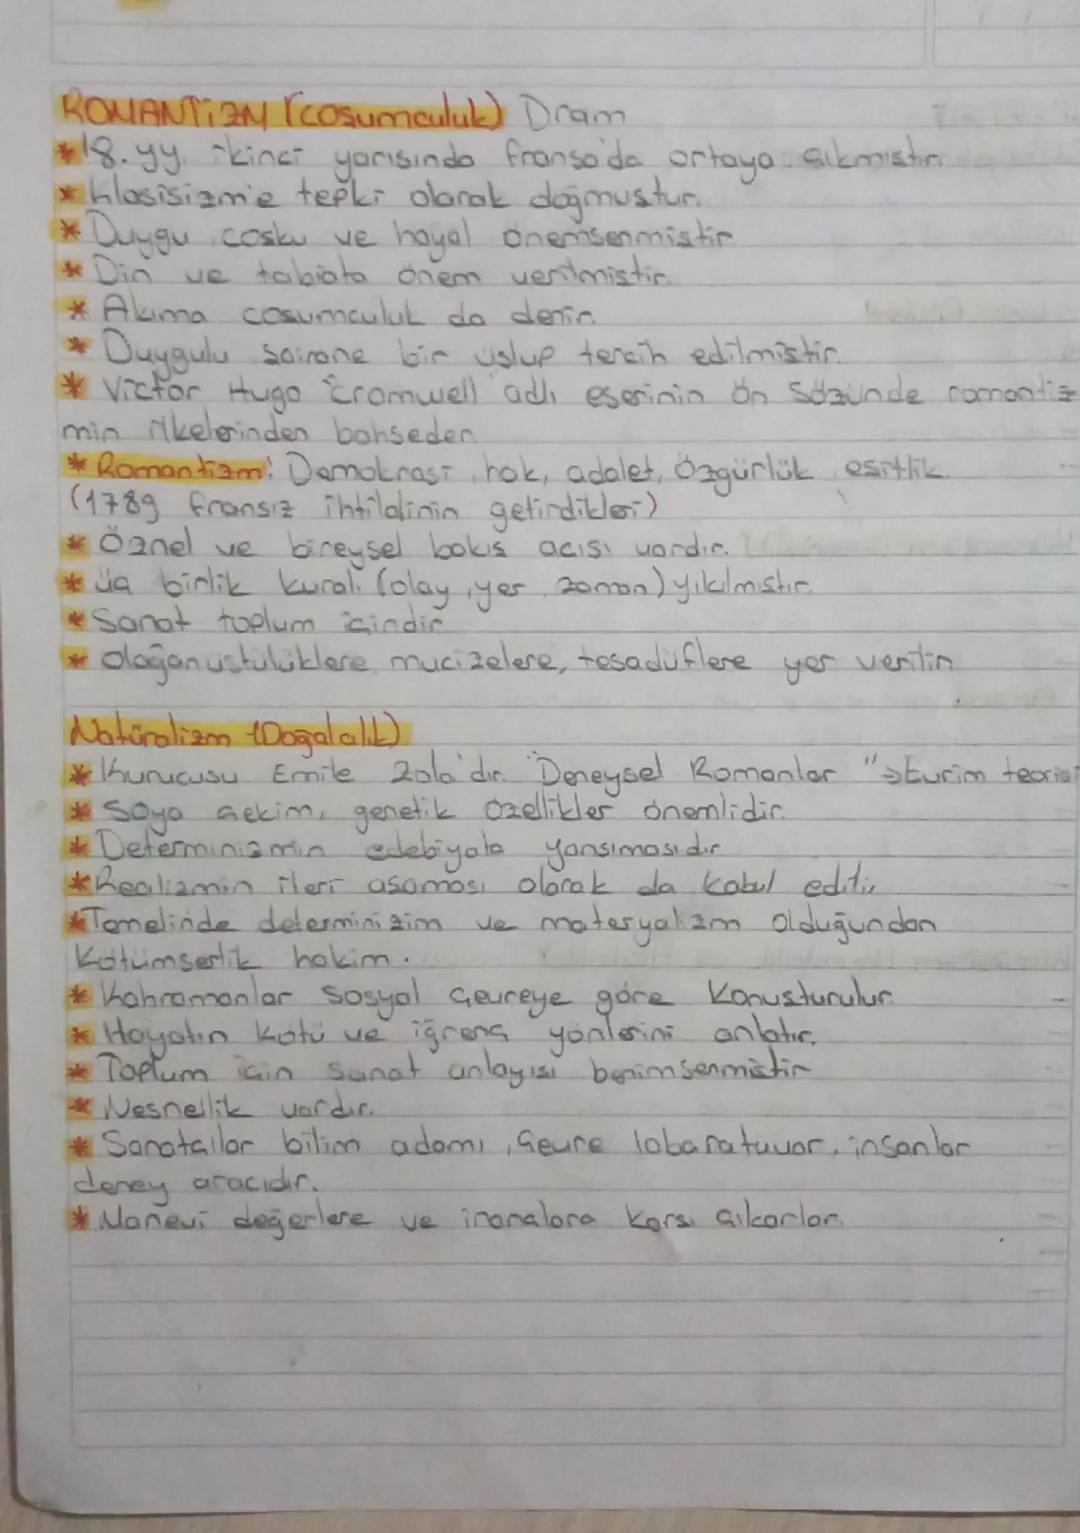 ROMANTİZM (coşumculuk) Dram
* 18. yy. ikinci yarısında fransa'da ortaya çıkmıştır.
* klasisizm'e tepki olarak doğmuştur.
* Duygu coşku ve hayal önemsenmiştir
* Din ve tabiata önem verilmiştir.
* Akıma coşumculuk da denir.
* Duygulu şairane bir üslup tercih edilmiştir.
* Victor Hugo "cromwell" adlı eserinin ön sözünde romantiz
min ilkelerinden bahseder.
* Romantizm: Demokrasi, hak, adalet, özgürlük, eşitlik.
(1789 fransız ihtilalinin getirdikleri)
* Öznel ve bireysel bakış açısı vardır.
* üç birlik kuralı (olay, yer, zaman) yıkılmıştır.
* Sanat toplum içindir
* olağanüstülüklere, mucizelere, tesadüflere yer verilir.
Natüralizm (Doğalcılık)
* Kurucusu Emile Zola'dır. "Deneysel Romanlar" → Evrim teorisi
* Soya çekim, genetik özellikler önemlidir.
* Determinizmin edebiyata yansımasıdır
* Realizmin ileri aşaması olarak da kabul edilir.
* Temelinde determinizim ve materyalizm olduğundan
kötümserlik hakim.
* Kahramanlar sosyal çevreye göre konuşturulur.
* Hayatın kötü ve iğrenç yönlerini anlatır.
* Toplum için sanat anlayışı benimsenmiştir
* Nesnellik vardır.
* Sanatçılar bilim adamı, çevre labaratuvar, insanlar
deney aracıdır.
* Manevi değerlere ve inançlara karşı çıkarlar.